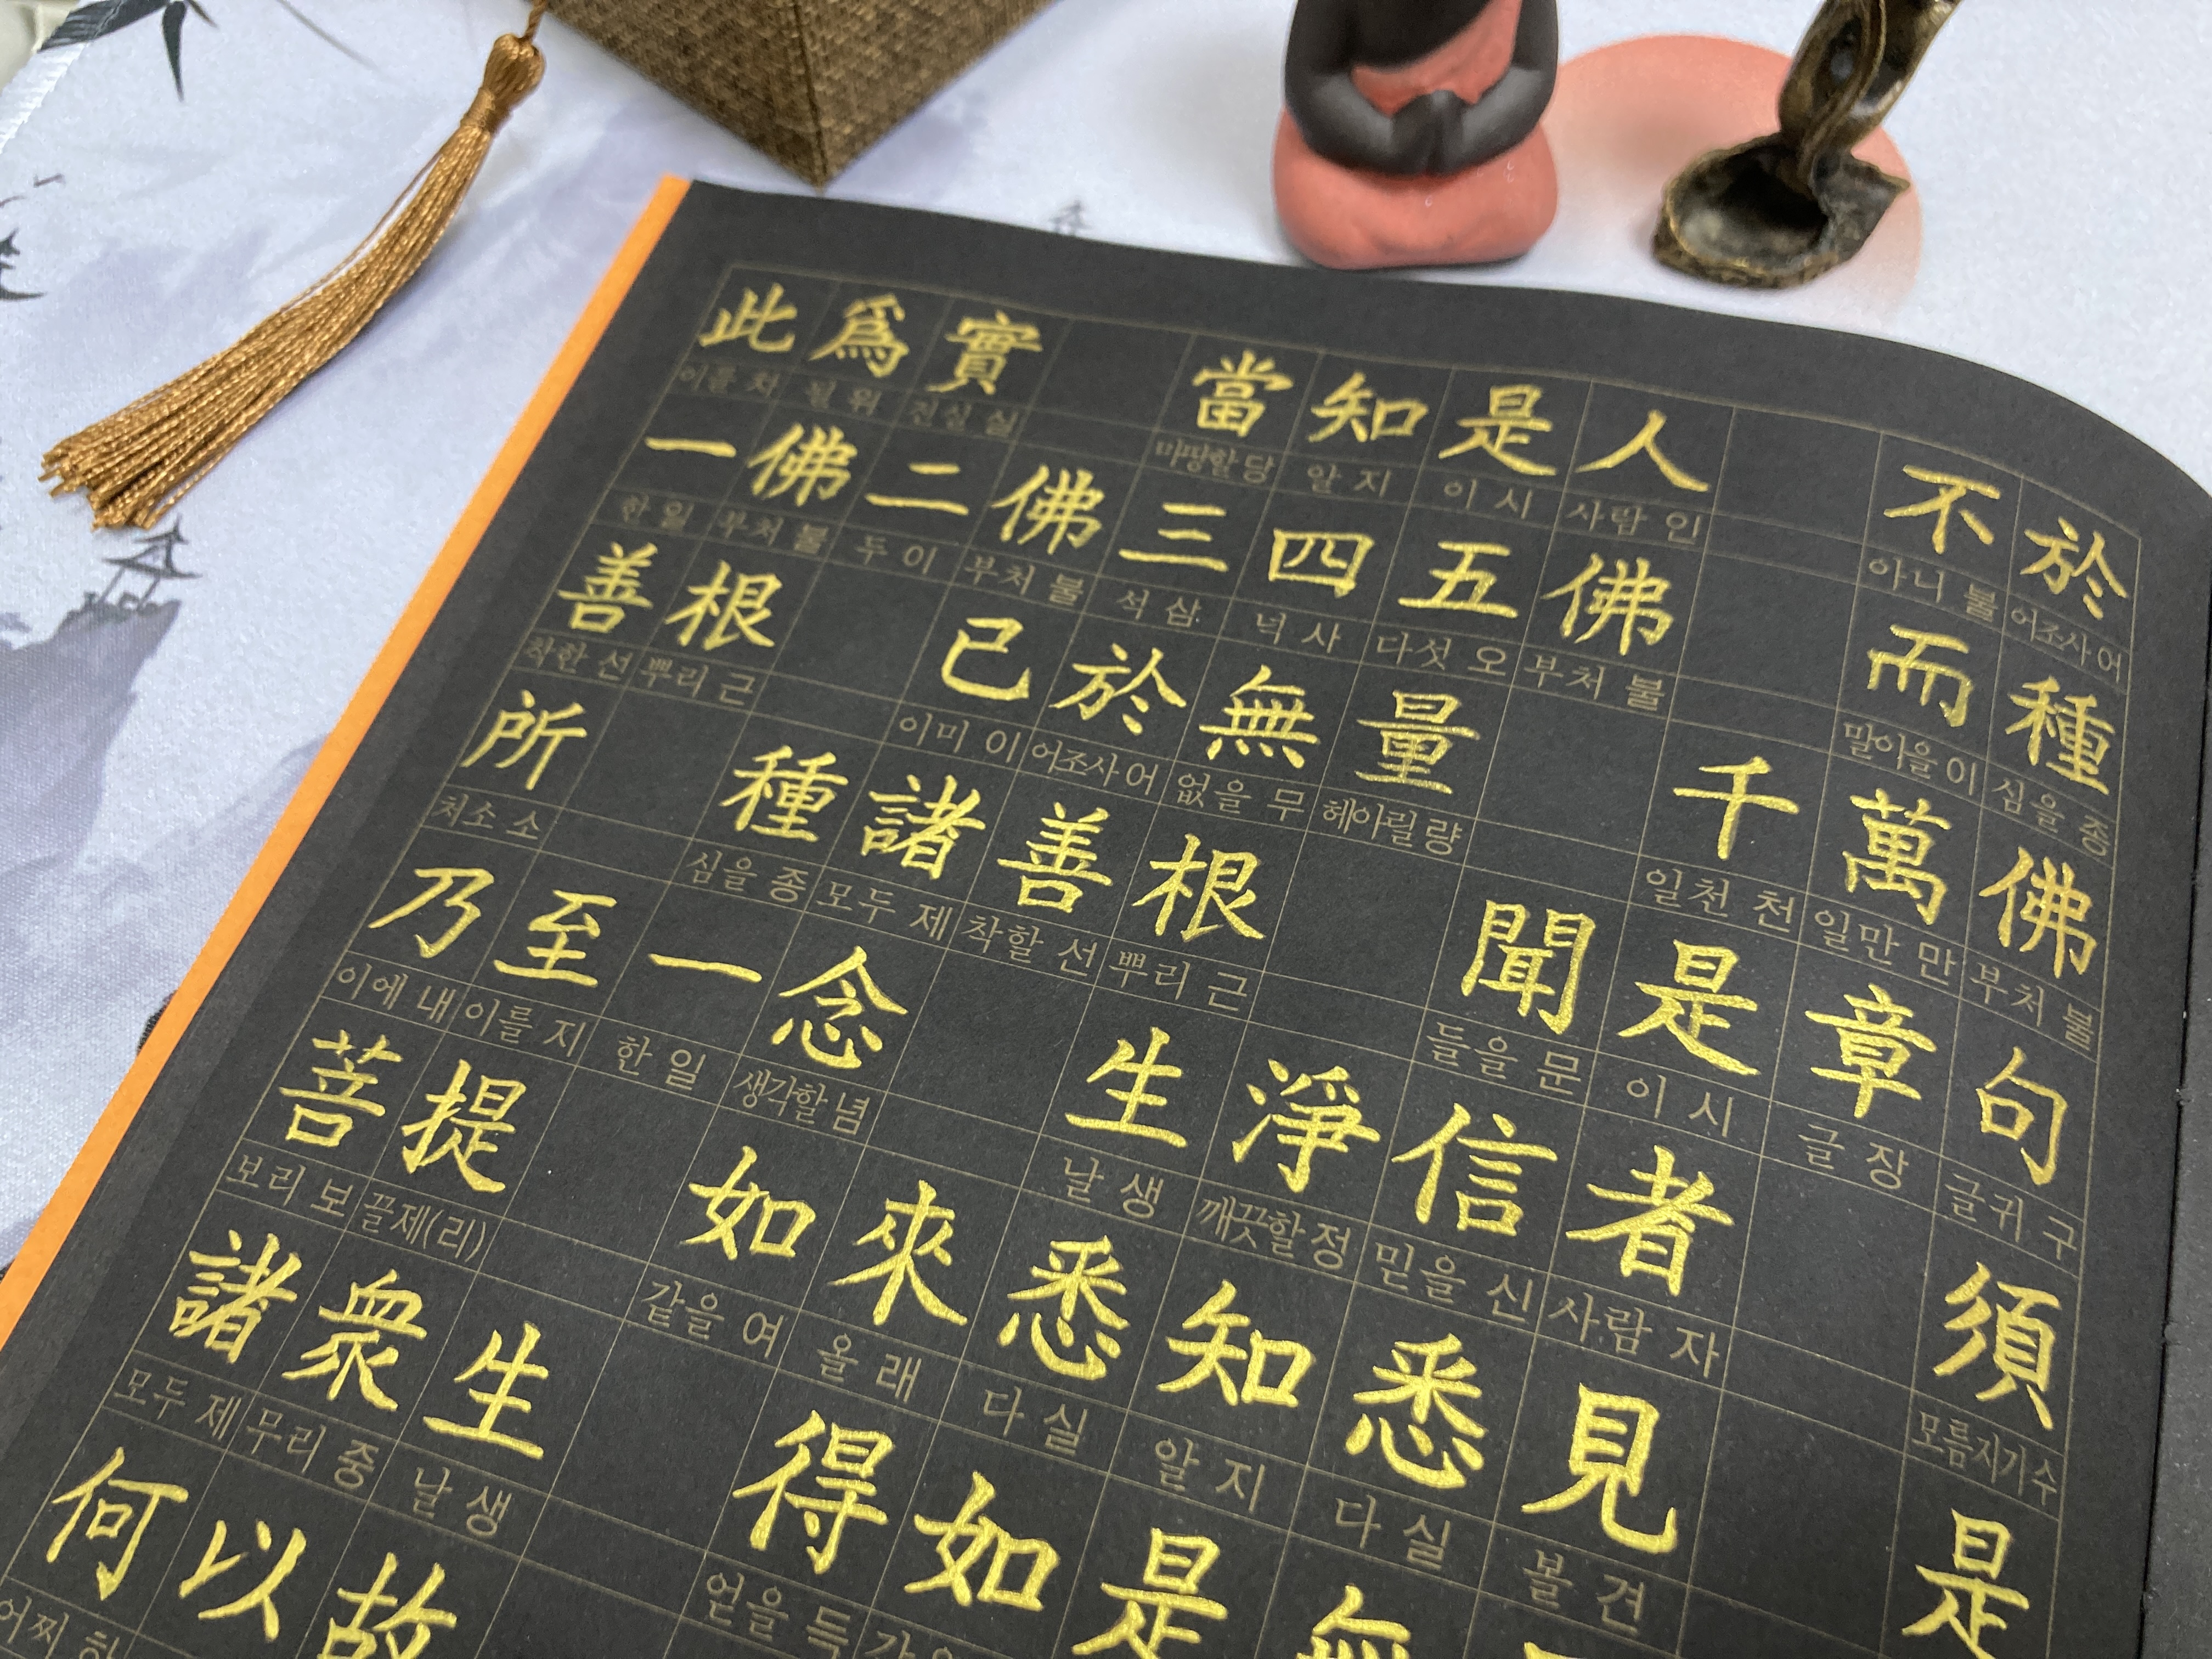 此爲實 當知是人 不於
이를 차 위 진실 실 마땅할 당 알 지 이 시 사람 인 아니 불 어조사 어
一佛二佛三四五佛 而種
한 일 부처 불 두 이 부처 불 석 삼 넉 사 다섯 오 부처 불 말이을 이 심을 종
善根 已於無量 千萬佛
착한 선 뿌리 근 이미 이 어조사 어 없을 무 헤아릴 량 일천 천 일만 만 부처 불
所 種諸善根 聞是章句
처소 소 심을 종 모두 제 착할 선 뿌리 근 들을 문 이 시 글 장 글귀 구
乃至一念 生淨信者 須
이에 내 이를 지 한 일 생각할 념 날 생 깨끗할 정 믿을 신 사람 자 모름지기 수
菩提 如來悉知悉見 是
보리 보 끌제(리) 같을 여 올 래 다 실 알 지 다 실 볼 견
諸衆生 得如是無
모두 제 무리 중 날 생 얻을 득
何以故
어찌 하